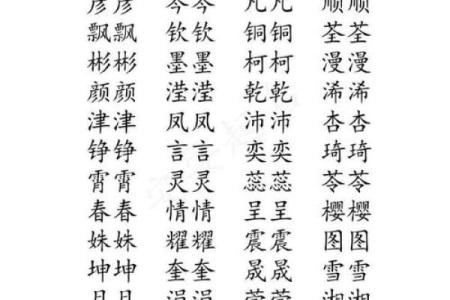 彦彦 岑岑 凡凡 顺顺
飘飘 钦钦 铜铜 荃荃
彬彬 墨墨 柯柯 漫漫
颜颜 滢滢 乾乾 浠浠
津津 凤凤 沛沛 杏杏
铮铮 言言 奕奕 琦琦
霄霄 灵灵 蕊蕊 苓苓
春春 情情 呈呈 樱樱
姝姝 耀耀 震震 图图
坤坤 奎奎 晟晟 雪雪
涓涓 湘湘